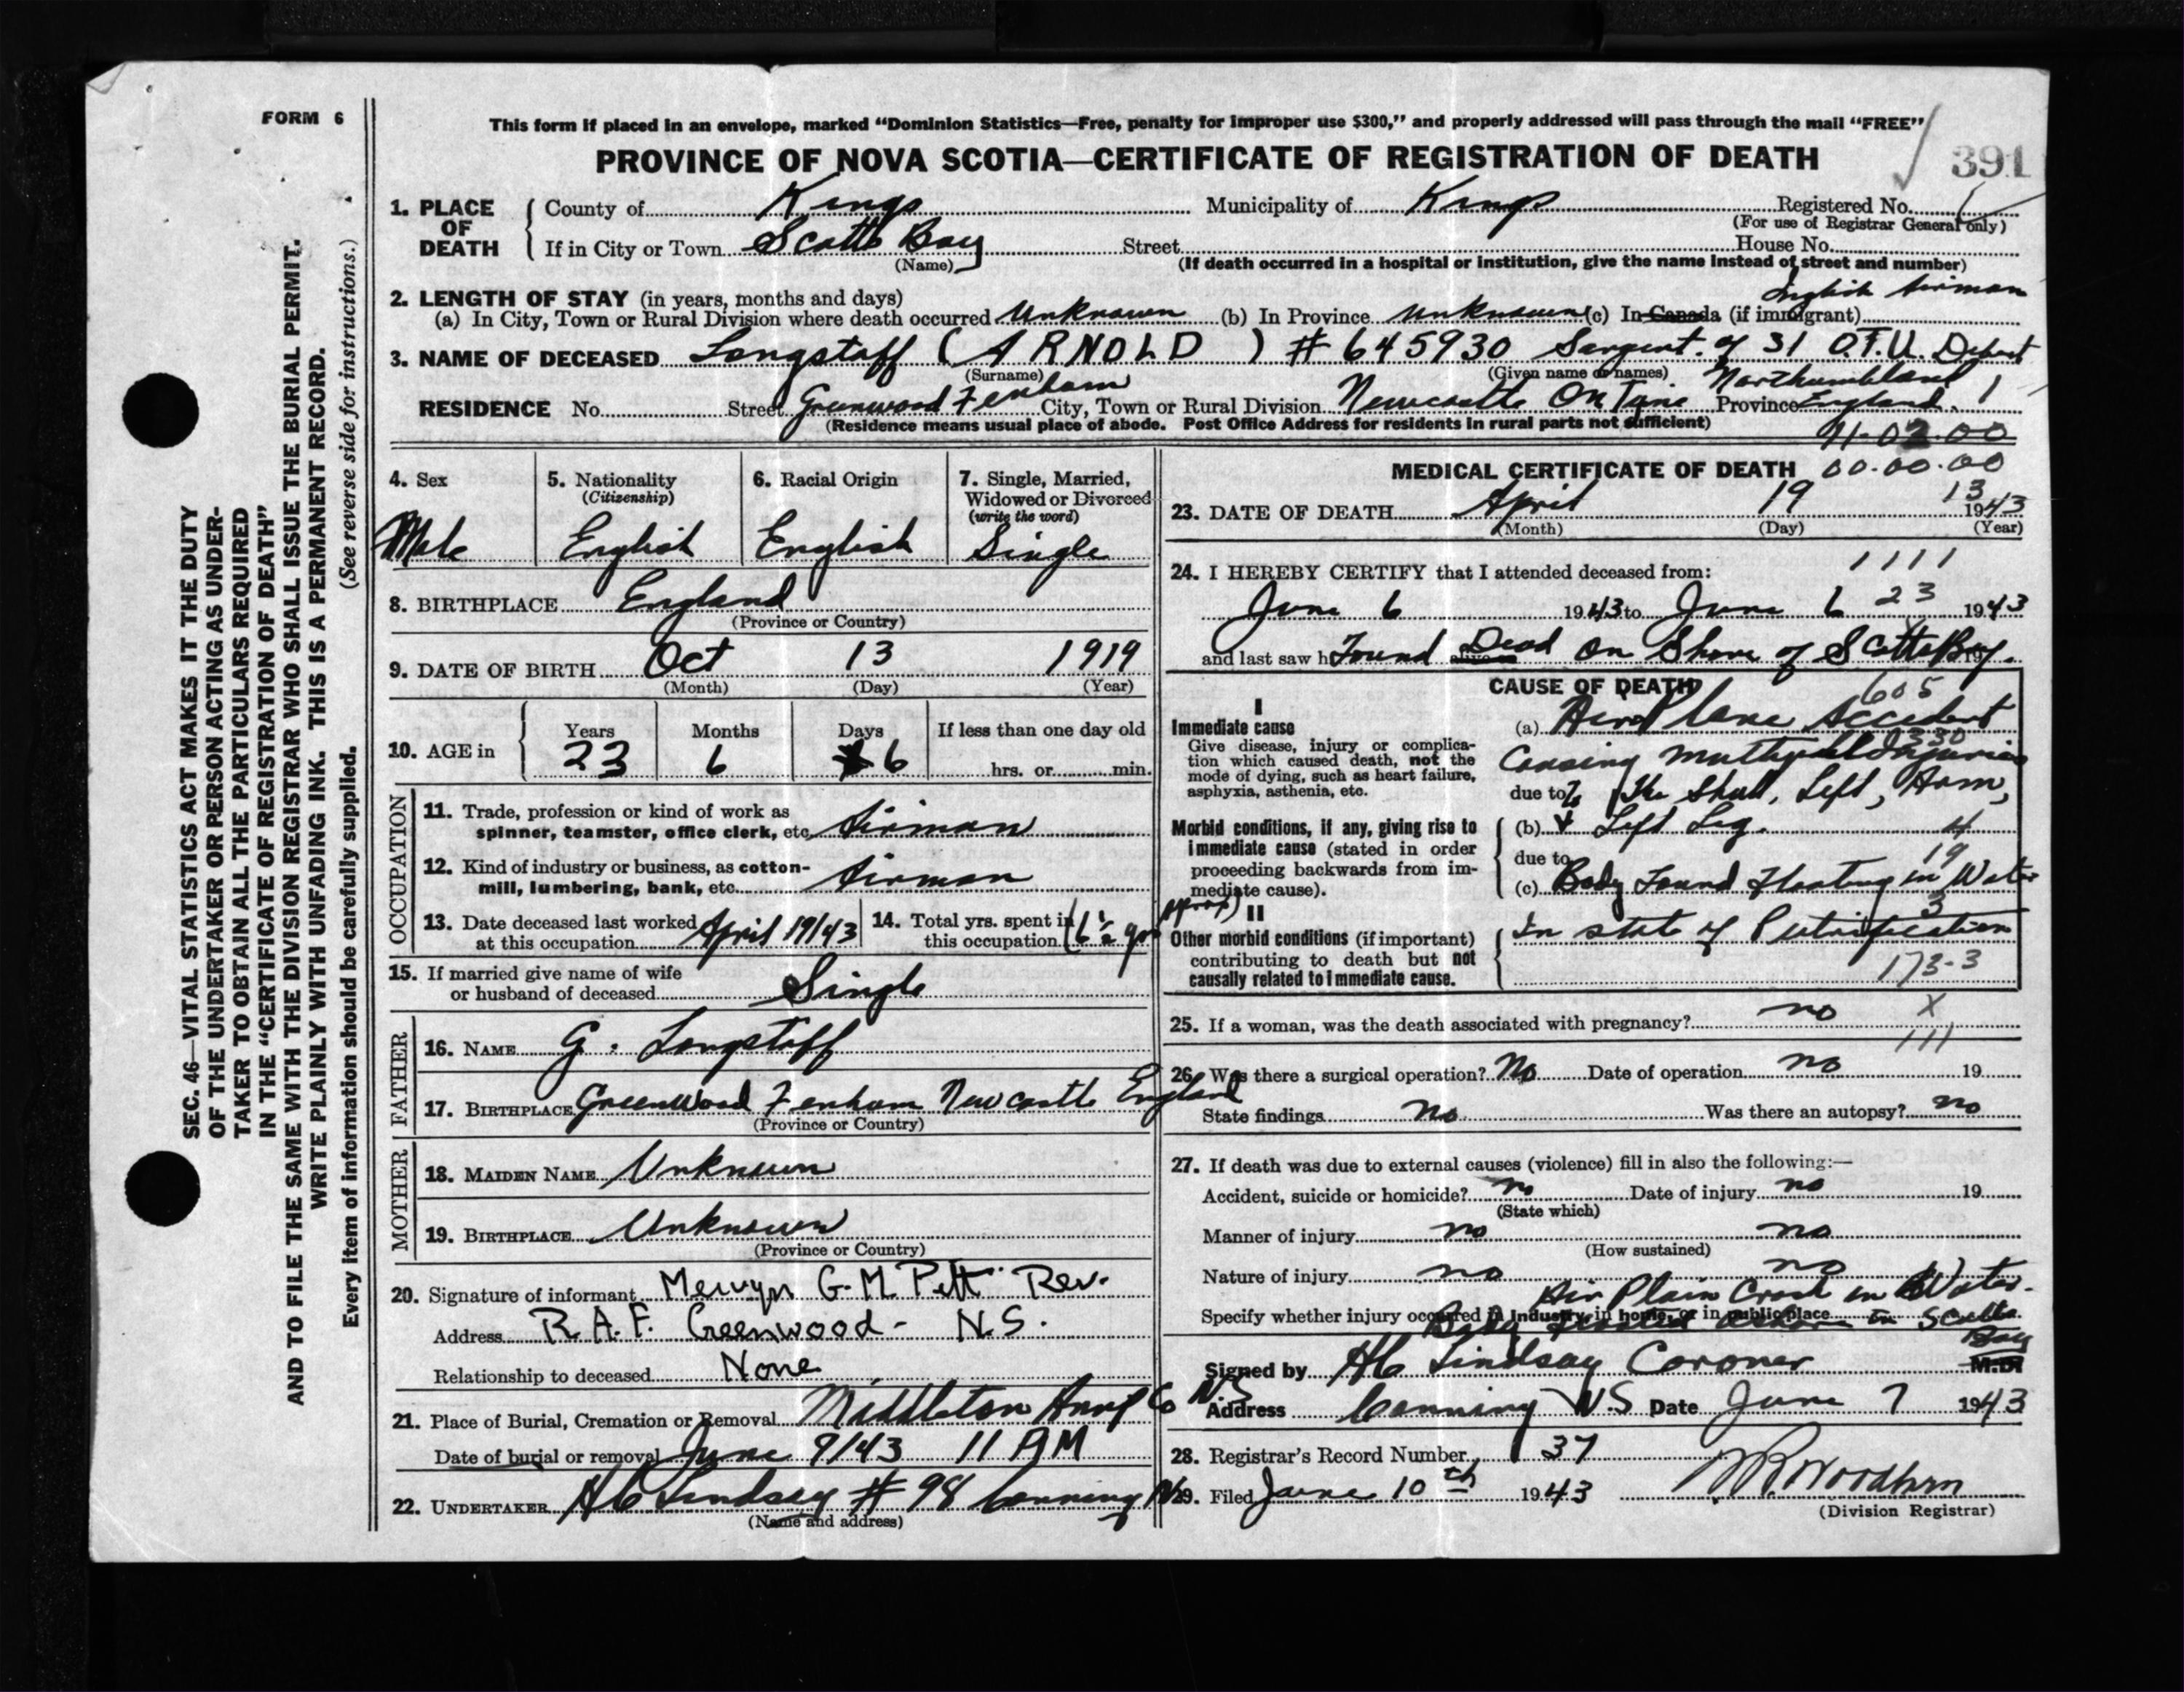 FORM 6
This form if placed in an envelope, marked "Dominion Statistics—Free, penalty for improper use $300," and properly addressed will pass through the mail "FREE"
PROVINCE OF NOVA SCOTIA—CERTIFICATE OF REGISTRATION OF DEATH
391
1. PLACE OF DEATH
County of Kings Municipality of Kings Registered No.
(For use of Registrar General only)
If in City or Town Scotts Bay Street House No.
(Name) (If death occurred in a hospital or institution, give the name instead of street and number)
2. LENGTH OF STAY (in years, months and days) English Airman
(a) In City, Town or Rural Division where death occurred Unknown (b) In Province Unknown (c) In Canada (if immigrant)
3. NAME OF DECEASED Longstaff (ARNOLD) # 645930 Sargent. of 31 O.T.U. Debert
(Surname) (Given name or names)
Northumbland 1
RESIDENCE No. Street Greenwood Fenham City, Town or Rural Division Newcastle On Tyne Province England.
(Residence means usual place of abode. Post Office Address for residents in rural parts not sufficient)
91-02.00
4. Sex 5. Nationality (Citizenship) 6. Racial Origin 7. Single, Married, Widowed or Divorced (write the word)
Male English English Single
8. BIRTHPLACE England
(Province or Country)
9. DATE OF BIRTH Oct 13 1919
(Month) (Day) (Year)
10. AGE in Years Months Days If less than one day old
23 6 6 hrs. or min.
OCCUPATION
11. Trade, profession or kind of work as
spinner, teamster, office clerk, etc. Airman
12. Kind of industry or business, as cotton-
mill, lumbering, bank, etc. Airman
13. Date deceased last worked at this occupation April 19/43 14. Total yrs. spent in this occupation (6½ yrs approx)
15. If married give name of wife
or husband of deceased Single
FATHER
16. NAME G. Longstaff
17. BIRTHPLACE Greenwood Fenham Newcastle England
(Province or Country)
MOTHER
18. MAIDEN NAME Unknown
19. BIRTHPLACE Unknown
(Province or Country)
20. Signature of informant Mervyn G.M. Pett Rev.
Address R.A.F. Greenwood - N.S.
Relationship to deceased None
21. Place of Burial, Cremation or Removal Middleton Annp Co N.S
Date of burial or removal June 9/43 11 AM
22. UNDERTAKER HC Lindsay # 98 Canning NS
(Name and address)
MEDICAL CERTIFICATE OF DEATH 00.00.00
13
23. DATE OF DEATH April 19 1943
(Month) (Day) (Year)
24. I HEREBY CERTIFY that I attended deceased from: 1111
June 6 1943 to June 6 23 1943
and last saw h Found alive on Dead On Shore of Scotts Bay. 19
CAUSE OF DEATH
605
I
Immediate cause
Give disease, injury or complica-
tion which caused death, not the
mode of dying, such as heart failure,
asphyxia, asthenia, etc.
(a) Aero Plane Accident
0330
Causing Multypal Injuries
due to To The Skull, Left, Arm,
Morbid conditions, if any, giving rise to
immediate cause (stated in order
proceeding backwards from im-
mediate cause).
(b) & Left Leg. 4
due to 19
(c) Body Found Floating in Water
3
II
Other morbid conditions (if important)
contributing to death but not
causally related to immediate cause.
In state of Putrification
173-3
25. If a woman, was the death associated with pregnancy? no X
111
26. Was there a surgical operation? No Date of operation no 19
State findings no Was there an autopsy? no
27. If death was due to external causes (violence) fill in also the following:—
Accident, suicide or homicide? no Date of injury no 19
(State which)
Manner of injury no no
(How sustained)
Nature of injury no no
Air Plain Crash in Water.
Specify whether injury occurred in industry, in home, or in public place
Body in Scotts Bay
Signed by HC Lindsay Coroner M.D.
Address Canning N.S Date June 7 1943
28. Registrar's Record Number 37
29. Filed June 10th 1943
(Division Registrar)
SEC. 46—VITAL STATISTICS ACT MAKES IT THE DUTY
OF THE UNDERTAKER OR PERSON ACTING AS UNDER-
TAKER TO OBTAIN ALL THE PARTICULARS REQUIRED
IN THE "CERTIFICATE OF REGISTRATION OF DEATH"
AND TO FILE THE SAME WITH THE DIVISION REGISTRAR WHO SHALL ISSUE THE BURIAL PERMIT.
WRITE PLAINLY WITH UNFADING INK. THIS IS A PERMANENT RECORD.
Every item of information should be carefully supplied. (See reverse side for instructions.)